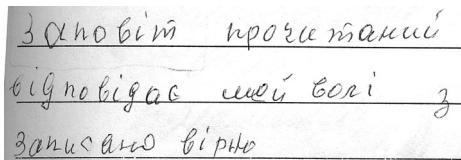 Заповіт прочитаний
відповідає моей волі з
записано вірно